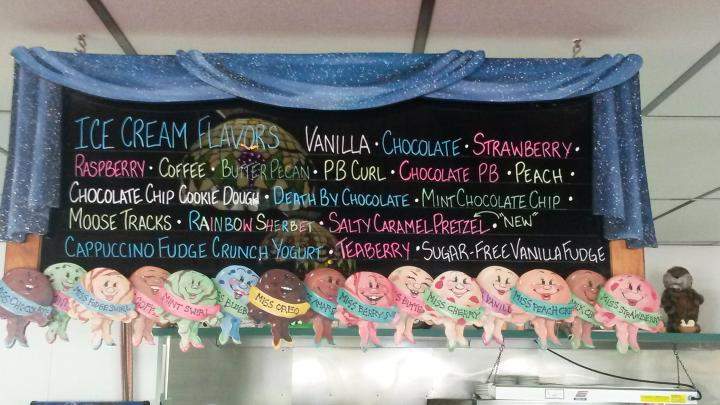 ICE CREAM FLAVORS VANILLA · CHOCOLATE · STRAWBERRY ·
RASPBERRY · COFFEE · BUTTER PECAN · PB CURL · CHOCOLATE PB · PEACH ·
CHOCOLATE CHIP COOKIE DOUGH · DEATH BY CHOCOLATE · MINT CHOCOLATE CHIP ·
MOOSE TRACKS · RAINBOW SHERBET · SALTY CARAMEL PRETZEL "NEW"
CAPPUCCINO FUDGE CRUNCH YOGURT · TEABERRY · SUGAR-FREE VANILLA FUDGE
MISS CHOCOLATE
MISS FUDGE SWIRL
MINT SWIRL
MISS OREO
MISS BERRY
MISS CHERRY
VANILL
MISS PEACH
MISS STRAWBERRY